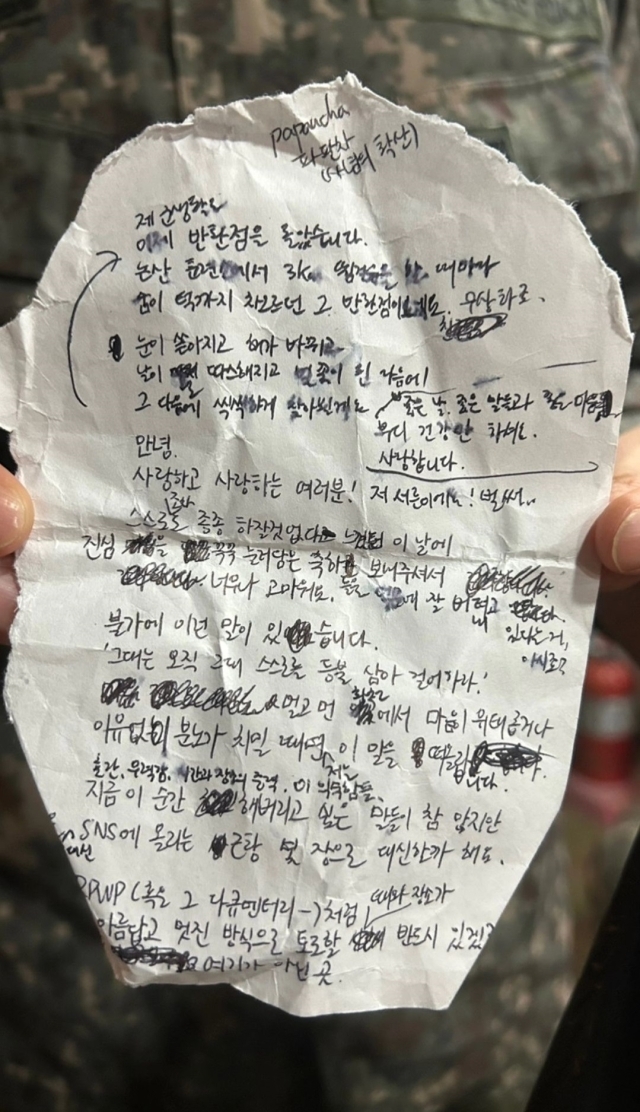 papancha
파판차
(사념의 확산)
제 군생활도
이제 반환점을 돌았습니다.
논산 훈련소에서 3k 뜀걸음을 할 때마다
숨이 턱까지 차오르던 그 반환점이 우상화로.
눈이 쏟아지고 해가 바뀌고
날이 따스해지고 벚꽃이 핀 다음에
그 다음에 씩씩하게 찾아뵐게요
좋은 날, 좋은 말들과 좋은 마음
부디 건강만 하세요.
사랑합니다.
안녕.
사랑하고 사랑하는 여러분! 저 서른이에요! 벌써..
스스로도 종종 하잘것없다 느껴지던 이 날에
진심을 꾹꾹 눌러담은 축하 보내주셔서
너무나 고마워요. 잘 버텨내고 있다는 거,
아시죠?
불가에 이런 말이 있습니다.
'그대는 오직 그대 스스로를 등불 삼아 걸어가라.'
멀고 먼 화천에서 마음이 위태롭거나
이유없이 분노가 치밀 때면 저는 이 말을 떠올립니다.
출간, 무력감, 시간과 장소의 술력, 이 의무감들,
지금 이 순간 해버리고 싶은 말들이 참 많지만
SNS에 올리는 근황 몇 장으로 대신할까 해요.
RPWP (혹은 그 다큐멘터리-)처럼 때와 장소가
아름답고 멋진 방식으로 토로할 반드시 있겠죠
여기가 아닌 곳.